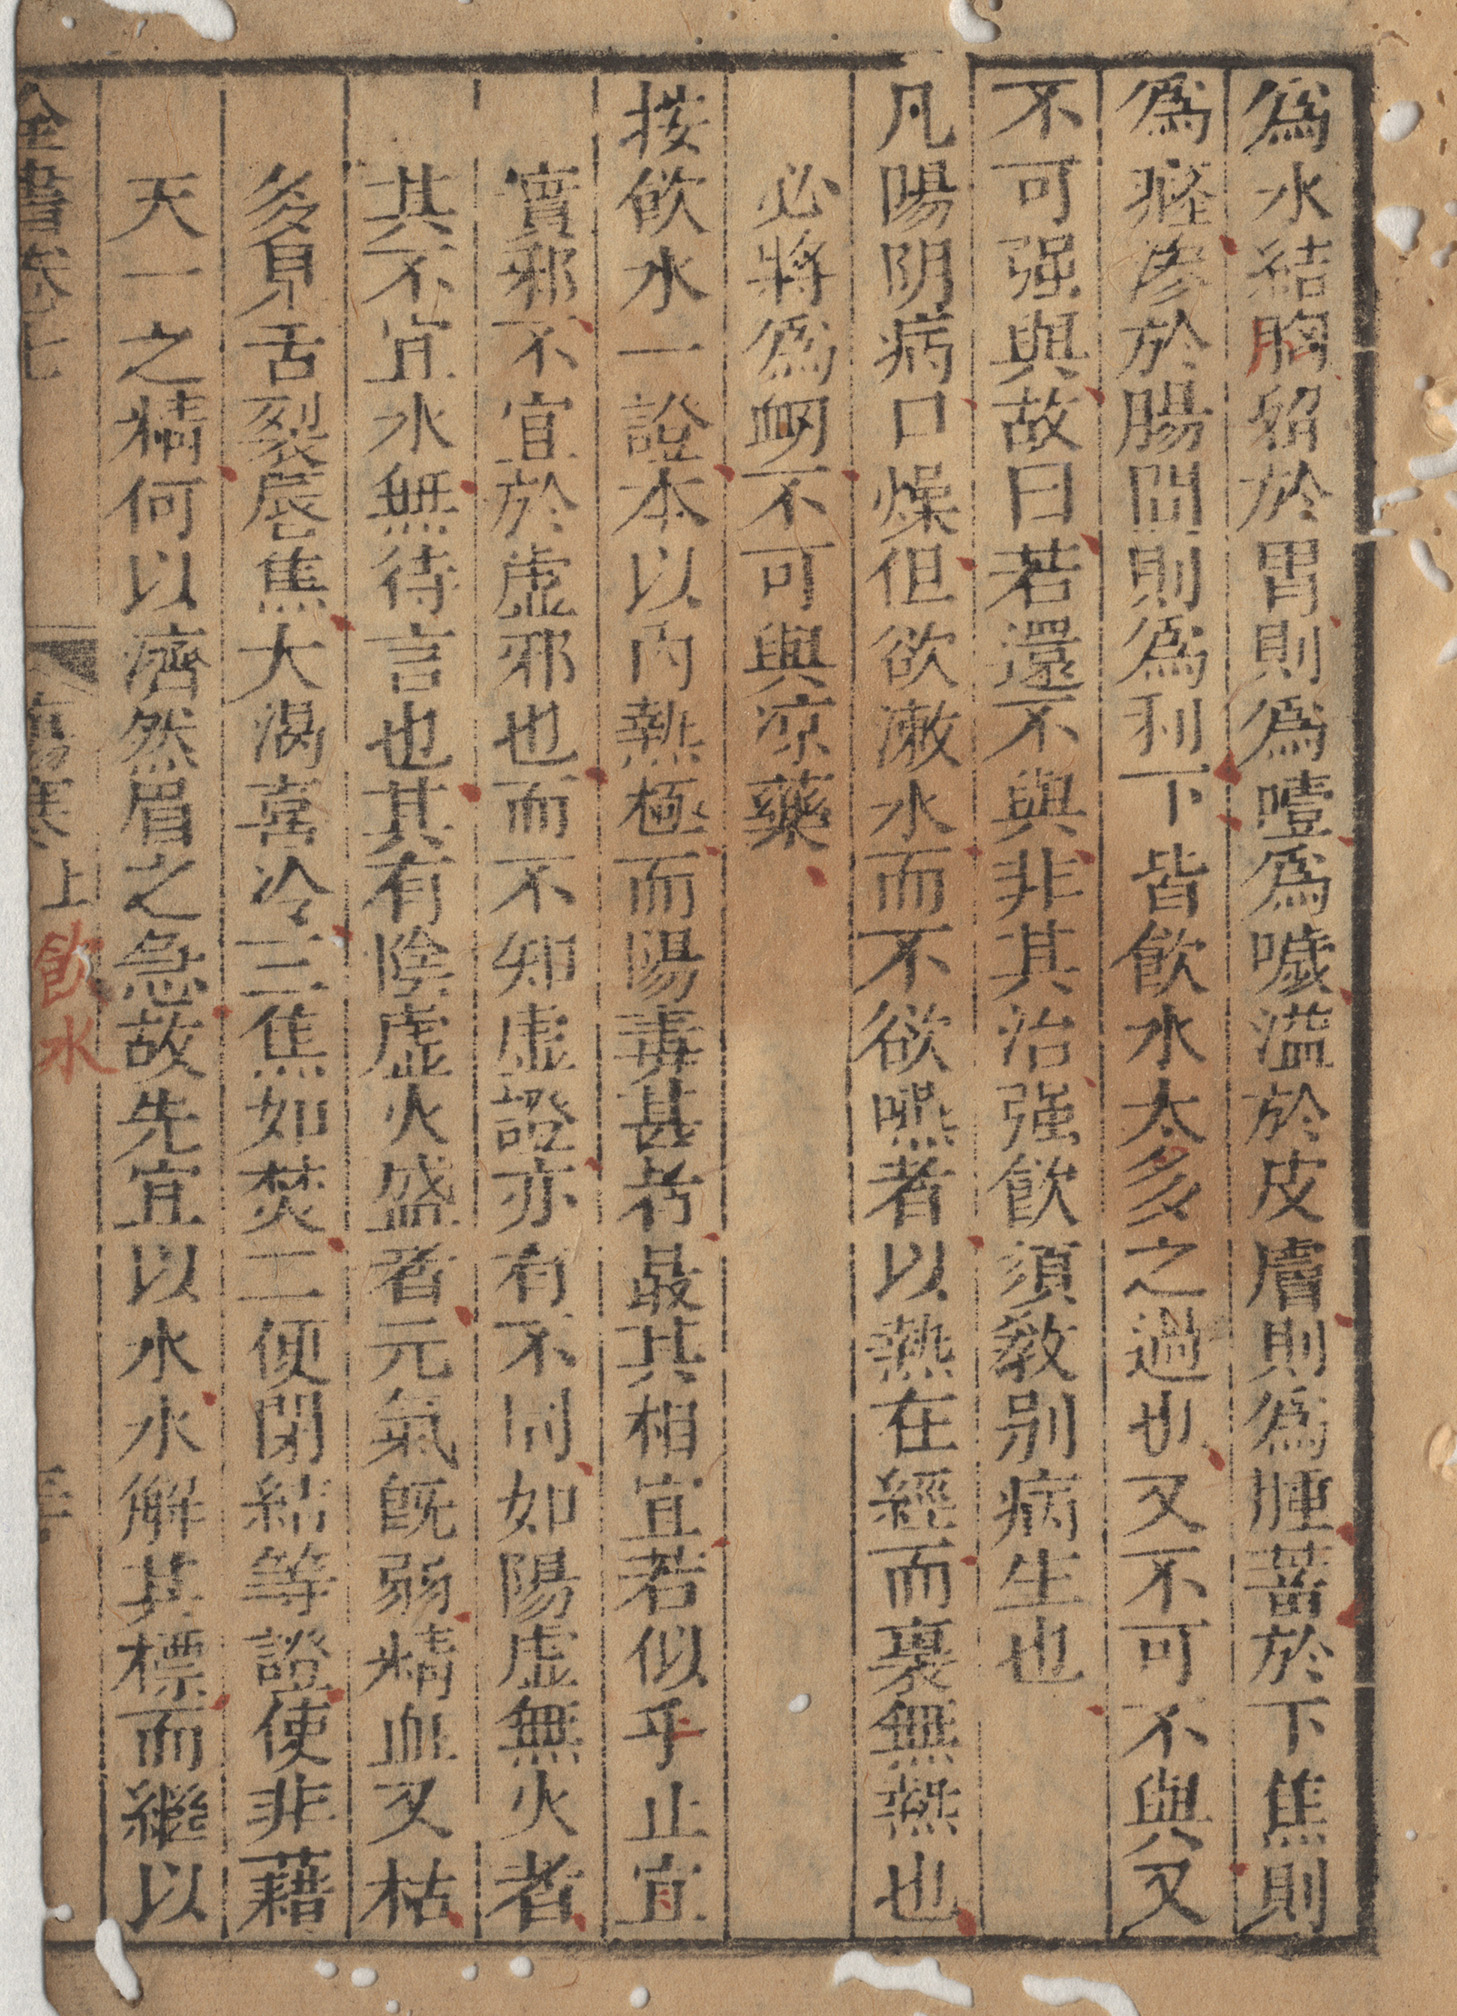 為水結胸留於胃則為噎為噦溢於皮膚則為腫蓄於下焦則
為癃滲於腸間則為利下皆飲水太多之過也又不可不與又
不可强與故曰若還不與非其治强飲須教别病生也
凡陽明病口燥但欲漱水而不欲嚥者以熱在經而裏無熱也
必將為衂不可與凉藥
按飲水一證本以内熱極而陽毒甚者最其相宜若似乎止宜
實邪不宜於虚邪也而不知虚證亦有不同如陽虚無火者
其不宜水無待言也其有陰虚火盛者元氣旣弱精血又枯
多見舌裂唇焦大渴喜冷三焦如焚二便閉結等證使非藉
天一之精何以濟然眉之急故先宜以水水解其標而繼以
全書卷七 傷寒上 飲水